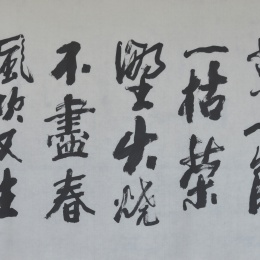 一歲
一枯榮
野火烧
不盡春
風吹又生